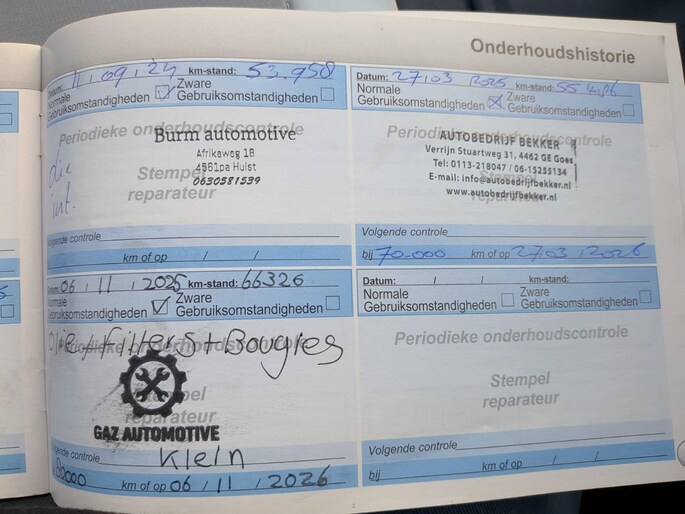 Onderhoudshistorie
Datum: 11 / 09 / 24 km-stand: 53.958
Normale
Gebruiksomstandigheden
Zware
Gebruiksomstandigheden
Periodieke onderhoudscontrole
Burm automotive
Afrikaweg 16
4561pa Hulst
0630581539
Stempel
reparateur
Volgende controle
km of op / /
Datum: 27 / 03 / 2025 km-stand:
Normale
Gebruiksomstandigheden
Zware
Gebruiksomstandigheden
Periodieke onderhoudscontrole
AUTOBEDRIJF BEKKER
Verrijn Stuartweg 31, 4462 GE Goes
Tel: 0113-218047 / 06-15255134
E-mail: info@autobedrijfbekker.nl
www.autobedrijfbekker.nl
Stempel
reparateur
Volgende controle
bij 70.000 km of op 27 / 03 / 2026
Datum: 06 / 11 / 2025 km-stand: 66326
Normale
Gebruiksomstandigheden
Zware
Gebruiksomstandigheden
Periodieke onderhoudscontrole
olie + filters + Bougies
Stempel
reparateur
GAZ AUTOMOTIVE
Volgende controle
Klein
km of op 06 / 11 / 2026
Datum: / / km-stand:
Normale
Gebruiksomstandigheden
Zware
Gebruiksomstandigheden
Periodieke onderhoudscontrole
Stempel
reparateur
Volgende controle
bij km of op / /